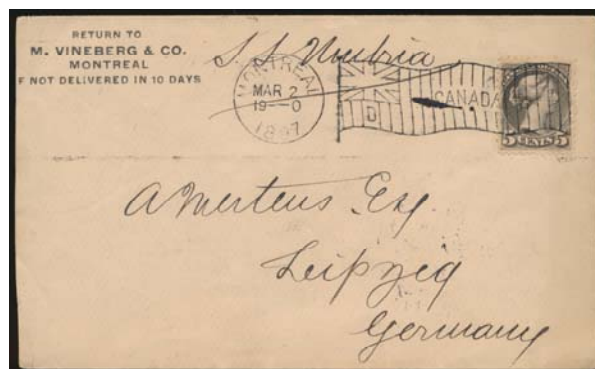 RETURN TO
M. VINEBERG & CO.
MONTREAL
F NOT DELIVERED IN 10 DAYS
S. S. Umbria
MONTREAL
MAR 2
19—0
1897
D
CANADA
5 CENTS 5
A Mertens Esq.
Leipzig
Germany